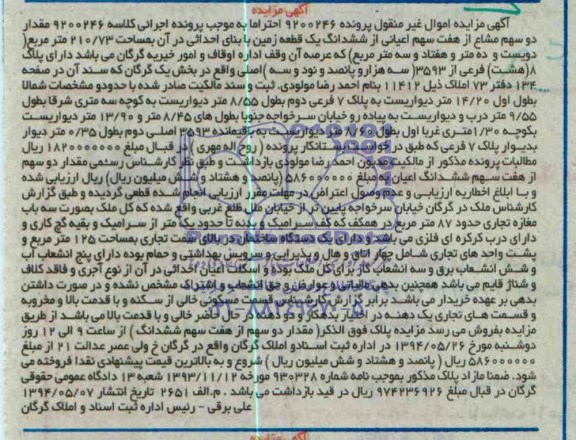 آگهی مزایده
آگهی مزایده اموال غیر منقول پرونده ۹۲۰۰۲۴۶ احتراما به موجب پرونده اجرائی کلاسه ۹۲۰۰۲۴۶ مقدار
دو سهم مشاع از هفت سهم اعیانی از ششدانگ یک قطعه زمین با بنای احداثی در آن بمساحت ۲۱۰/۷۳ متر مربع(
دویست و ده متر و هفتاد و سه متر مربع) که عرصه آن وقف اداره اوقاف و امور خیریه گرگان می باشد دارای پلاک
۸(هشت) فرعی از ۳۵۹۳( سه هزار و پانصد و نود و سه )اصلی واقع در بخش یک گرگان که سند آن در صفحه
۱۳۴ دفتر ۷۳ املاک ذیل ۱۱۴۱۲ بنام احمد رضا مولودی. ثبت و سند مالکیت صادر شده با حدود و مشخصات شمالا
بطول اول ۱۴/۲۰ متر دیواریست به پلاک ۷ فرعی دوم بطول ۸/۵۵ متر دیواریست به کوچه سه متری شرقا بطول
۹/۵۵ متر درب و دیواریست به پیاده رو خیابان سرخواجه جنوبا بطول های ۸/۴۵ متر و ۱۳/۹۰ متر دیواریست
بکوچه ۱/۳۰متری غربا اول بطول ۸/۶۵ متر دیواریست به باقیمانده ۳۵۹۳ اصلی دوم بطول ۰/۳۵ متر دیوار
بدیوار پلاک ۷ فرعی که طبق در خواست بستانکار پرونده ( روح اله مهری ) در قبال مبلغ ۱۸۲۰۰۰۰۰۰۰ ریال
مطالبات پرونده مذکور از مالکیت مدیون احمد رضا مولودی بازداشت و طبق نظر کارشناس رسمی مقدار دو سهم
از هفت سهم ششدانگ اعیان به مبلغ ۵۸۶۰۰۰۰۰۰ (پانصد و هشتاد و شش میلیون ریال) ریال ارزیابی شده
و با ابلاغ اخطاریه ارزیابی و عدم وصول اعتراض در مهلت مقرر ارزیابی انجام شده قطعی گردیده و طبق گزارش
کارشناس ملک در گرگان خیابان سرخواجه پایین تر از خیابان ملل ضلع غربی واقع شده که کل ملک بصورت سه باب
مغازه تجاری حدود ۸۷ متر مربع در همکف که کف سرامیک و بدنه تا حدود یک متر از سرامیک و بقیه گچ کاری و
دارای درب کرکره ای فلزی می باشد و دارای یک دستگاه ساختمان در بالای سمت تجاری بمساحت ۱۲۵ متر مربع و
پشت واحد های تجاری شامل چهار اتاق و هال و پذیرایی و سرویس بهداشتی و حمام بوده دارای پنج انشعاب آب
و شش انشعاب برق و سه انشعاب گاز برای کل ملک بوده و اسکلت اعیان احداثی در آن از نوع آجری و فاقد کلاف
و شناژ قایم می باشد همچنین بدهی مالیاتی و عوارض و حق انشعاب و اشتراک مشخص نشده و در صورت داشتن
بدهی بر عهده خریدار می باشد برابر گزارش کارشناس قسمت مسکونی خالی از سکنه و با قدمت بالا و مخروبه
و قسمت های تجاری یک دهنه در اختیار بدهکار و دو دهنه در حال حاضر خالی و با قدمت بالا می باشد از طریق
مزایده بفروش می رسد مزایده پلاک فوق الذکر( مقدار دو سهم از هفت سهم ششدانگ ) از ساعت ۹ الی ۱۲ روز
دوشنبه مورخ ۱۳۹۴/۰۵/۲۶ در اداره ثبت اسناد و املاک گرگان واقع در گرگان خ ولی عصر عدالت ۲۱ از مبلغ
۵۸۶۰۰۰۰۰۰ ریال ( پانصد و هشتاد و شش میلیون ریال ) شروع و به بالاترین قیمت پیشنهادی نقدا فروخته می
شود. ضمنا مازاد پلاک مذکور بموجب نامه شماره ۹۳۰۳۲۸ مورخه ۱۳۹۳/۱۱/۱۲ شعبه ۱۳ دادگاه عمومی حقوقی
گرگان در قبال مبلغ ۹۷۴۲۳۶۹۲۶ ریال در قید بازداشت می باشد . م.الف ۲۶۵۱ تاریخ انتشار ۱۳۹۴/۰۵/۰۷
علی برقی - رئیس اداره ثبت اسناد و املاک گرگان
آگهی مزایده